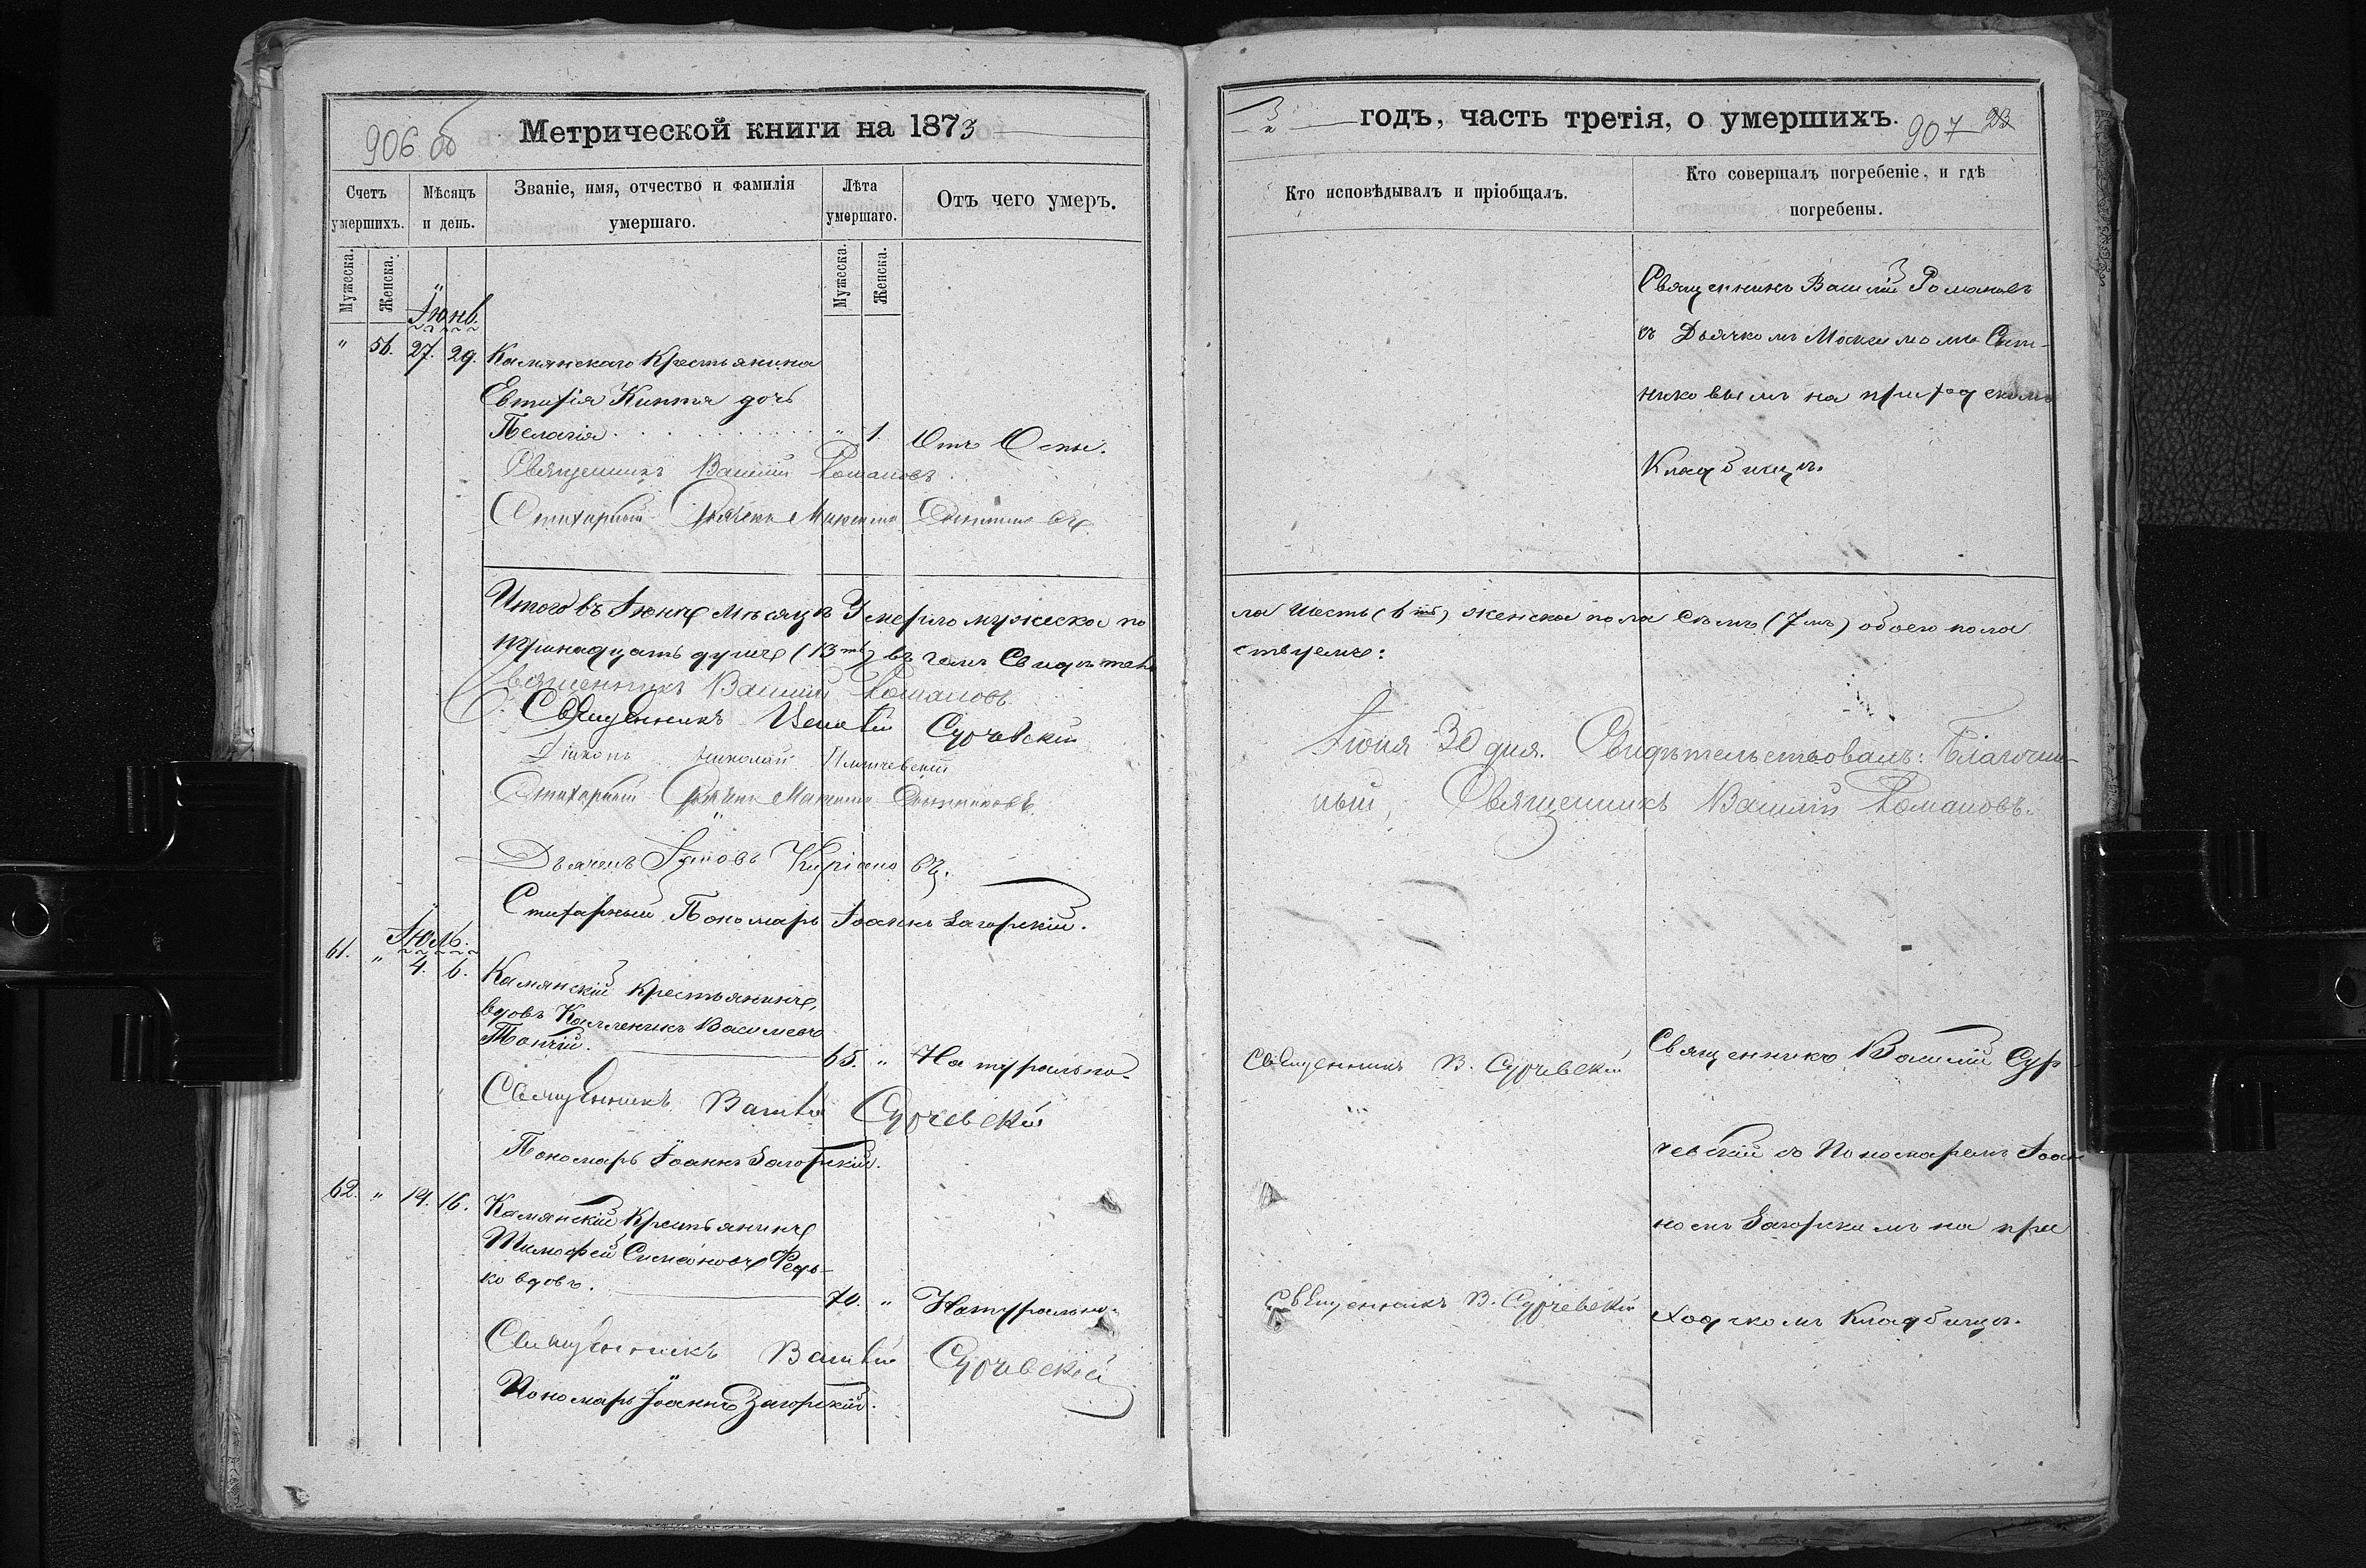 906 об
Метрической книги на 1873
Счетъ умершихъ.
Мѣсяцъ и день.
Званіе, имя, отчество и фамилія умершаго.
Лѣта умершаго.
Отъ чего умеръ.
Мужеска.
Женска.
Мужеска.
Женска.
Іюнь.
" 56. 27. 29. Камянскаго Крестьянина
Евтихія Кипта дочь
Пелагія " 1. Отъ Оспы.
Священникъ Василій Романовъ
Стихарный Дьячекъ Максимъ
Итого въ Іюнѣ мѣсяцѣ Умерло мужеска по
тринадцать душъ (13ть) въ чемъ Свидѣтель
Священникъ Василій Романовъ
Священникъ Василій Сурчевскій
Діаконъ Николай
Стихарный Дьячекъ Максимъ Сытниковъ
Дьячекъ Іяковъ Киріяковъ.
Стихарный Пономарь Іоаннъ Загорскій.
Іюль.
61. " 4. 6. Камянскій Крестьянинъ,
вдовъ Калленикъ Васильевъ
Топчій. 65. " Натурально.
Священникъ Василій Сурчевскій
Пономарь Іоаннъ Загорскій.
62. " 14. 16. Камянскій Крестьянинъ
Тимофей Симеоновъ Федь-
ко вдовъ. 70. " Натурально.
Священникъ Василій Сурчевскій
Пономарь Іоаннъ Загорскій.
3 годъ, часть третія, о умершихъ.
907
Кто исповѣдывалъ и пріобщалъ.
Кто совершалъ погребеніе, и гдѣ погребены.
Священникъ Василій Романовъ
съ Дьячкомъ Максимомъ Сыт-
никовымъ на приходскомъ
Кладбищѣ.
ла шесть (6ть) женска пола семь (7мь) обоего пола
ствуемъ:
Іюня 30 дня. Свидѣтельствовалъ: Благочин-
ный, Священникъ Василій Романовъ.
Священникъ В. Сурчевскій
Священникъ Василій Сур-
чевскій съ Пономаремъ Іоан
номъ Загорскимъ на при
Священникъ В. Сурчевскій
ходскомъ Кладбищѣ.